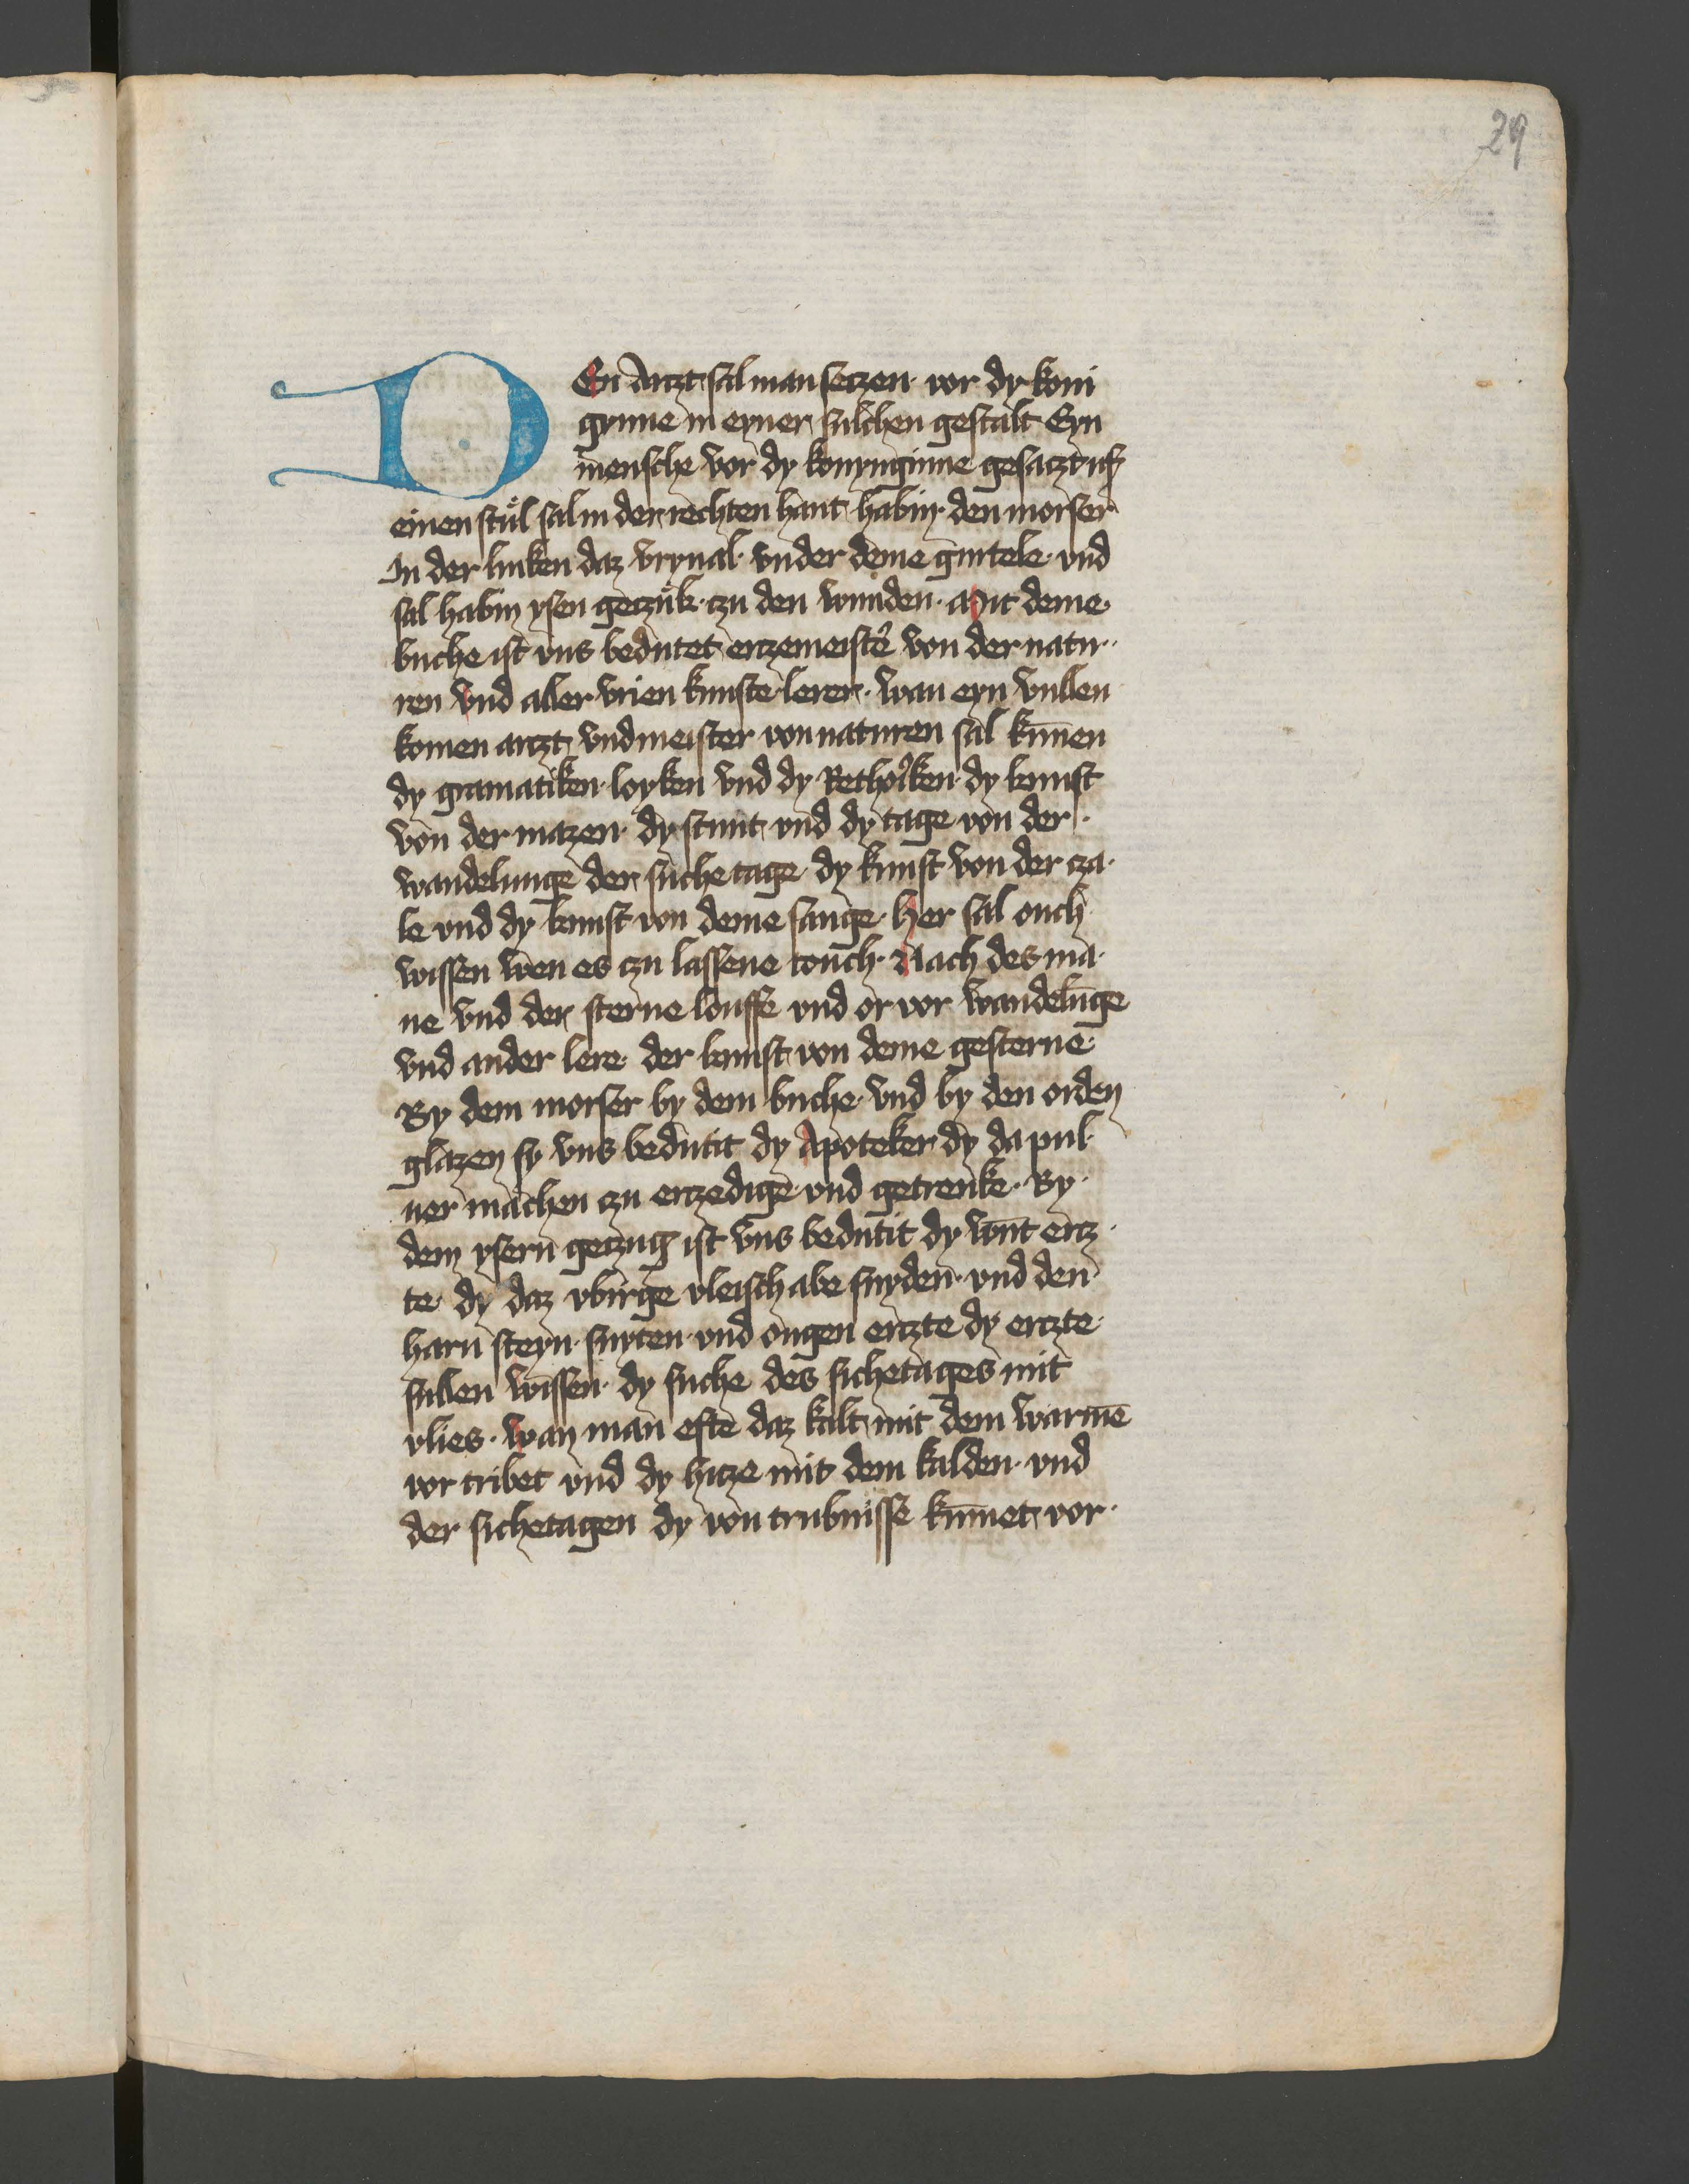 29
DEn Arczt sal man seczen vor dy koni
gynne in eyner sulchen gestalt Eyn
mensche vor dy konynginne gesaczt uf
einen stůl sal in der rechten hant habin den morser
In der linken daz vrynal · vnder deme gurtele · vnd
sal habin ysen geczůk · czu den wunden · Mit deme
buche ist vns bedutet erczemeist̉ von der natu·
ren vnd aller vrien kunste lerer · wan eyn vullen
komen arczt vnd meister von naturen sal kūnen
dy gramatiken loyken vnd dy Rethoͥken dy kunst
von der mazen dy stunt vnd dy tage von der ·
wandelunge der suchetage dy kunst von der cza·
le vnd dy kunst von deme sange · her sal ouch
wissen wen es czu lassene touch · Nach des ma·
ne vnd der sterne louffe vnd or vor wandelūge
vnd ander lere der kunst von deme gesternē
By dem morser by dem buche vnd by den orden
glazen sy vns bedutit dy Apoteker dy da pul·
uer machen czu erczedige vnd getrenke · By
dem ysern geczug ist vns bedutit dy wūt ercz·
te dy daz vbirge vleisch abe snyden vnd den
harn steyn snyten · vnd ougen erczte dy erczte
sullen wissen dy suche des sichetages mit
vlies · wan man efte daz kalt mit dem warmē
vor tribet vnd dy hicze mit dem kalden · vnd
der sichetagen dy von trubnisse kūmet vor ·